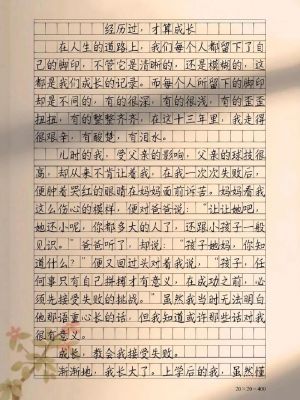 经历过，才算成长
在人生的道路上，我们每个人都留下了自
己的脚印，不管它是清晰的，还是模糊的，这
都是我们成长的记录。而每个人所留下的脚印
却是不同的，有的很深，有的很浅，有的歪歪
扭扭，有的整整齐齐，在这十三年里，我走得
很艰辛，有酸楚，有泪水。
儿时的我，受父亲的影响，父亲的球技很
高，却从来不肯让着我，在我一次次失败后，
便肿着哭红的眼睛在妈妈面前诉苦。妈妈看我
这么伤心的模样，便对爸爸说：“让让她吧，
她还小呢，你都多大的人了，还跟小孩子一般
见识。”爸爸听了，却说：“孩子她妈，你知
道什么？”便又回过头对着我说，“孩子，任
何事只有自己拼搏才有意义，在成功之前，必
须先接受失败的挑战。”虽然我当时无法明白
他那语重心长的话，但我知道或许那些话对我
很有意义。
成长，教会我接受失败。
渐渐地，我长大了。上学后的我，虽然懂
20×20=400